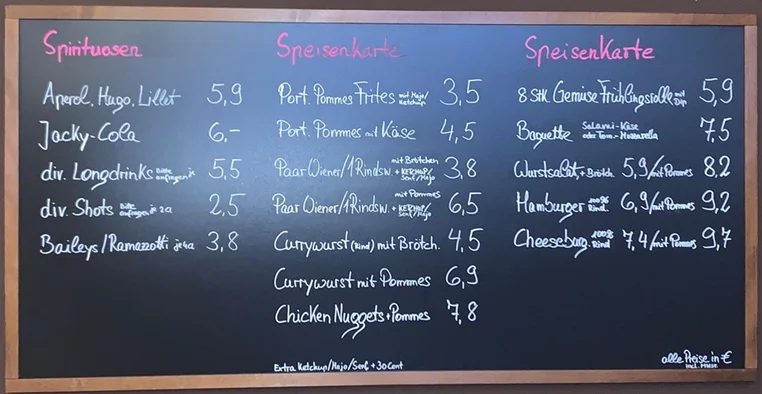 Spirituosen
Aperol, Hugo, Lillet 5,9
Jacky-Cola 6,-
div. Longdrinks Bitte anfragen je 5,5
div. Shots Bitte anfragen je 2a 2,5
Baileys/Ramazzotti je 4a 3,8
Speisenkarte
Port. Pommes Frites mit Majo/Ketchup 3,5
Port. Pommes mit Käse 4,5
Paar Wiener/1 Rindsw. mit Brötchen + Ketchup/Senf/Majo 3,8
Paar Wiener/1 Rindsw. mit Pommes + Ketchup/Senf/Majo 6,5
Currywurst (Rind) mit Brötch. 4,5
Currywurst mit Pommes 6,9
Chicken Nuggets + Pommes 7,8
Extra Ketchup/Majo/Senf + 30 Cent
Speisenkarte
8 Stk. Gemüse Frühlingsrolle mit Dip 5,9
Baguette Salami-Käse oder Tom.-Mozzarella 7,5
Wurstsalat, + Brötch. 5,9/mit Pommes 8,2
Hamburger 100% Rind 6,9/mit Pommes 9,2
Cheeseburg. 100% Rind 7,4/mit Pommes 9,7
alle Preise in €
incl. MwSt